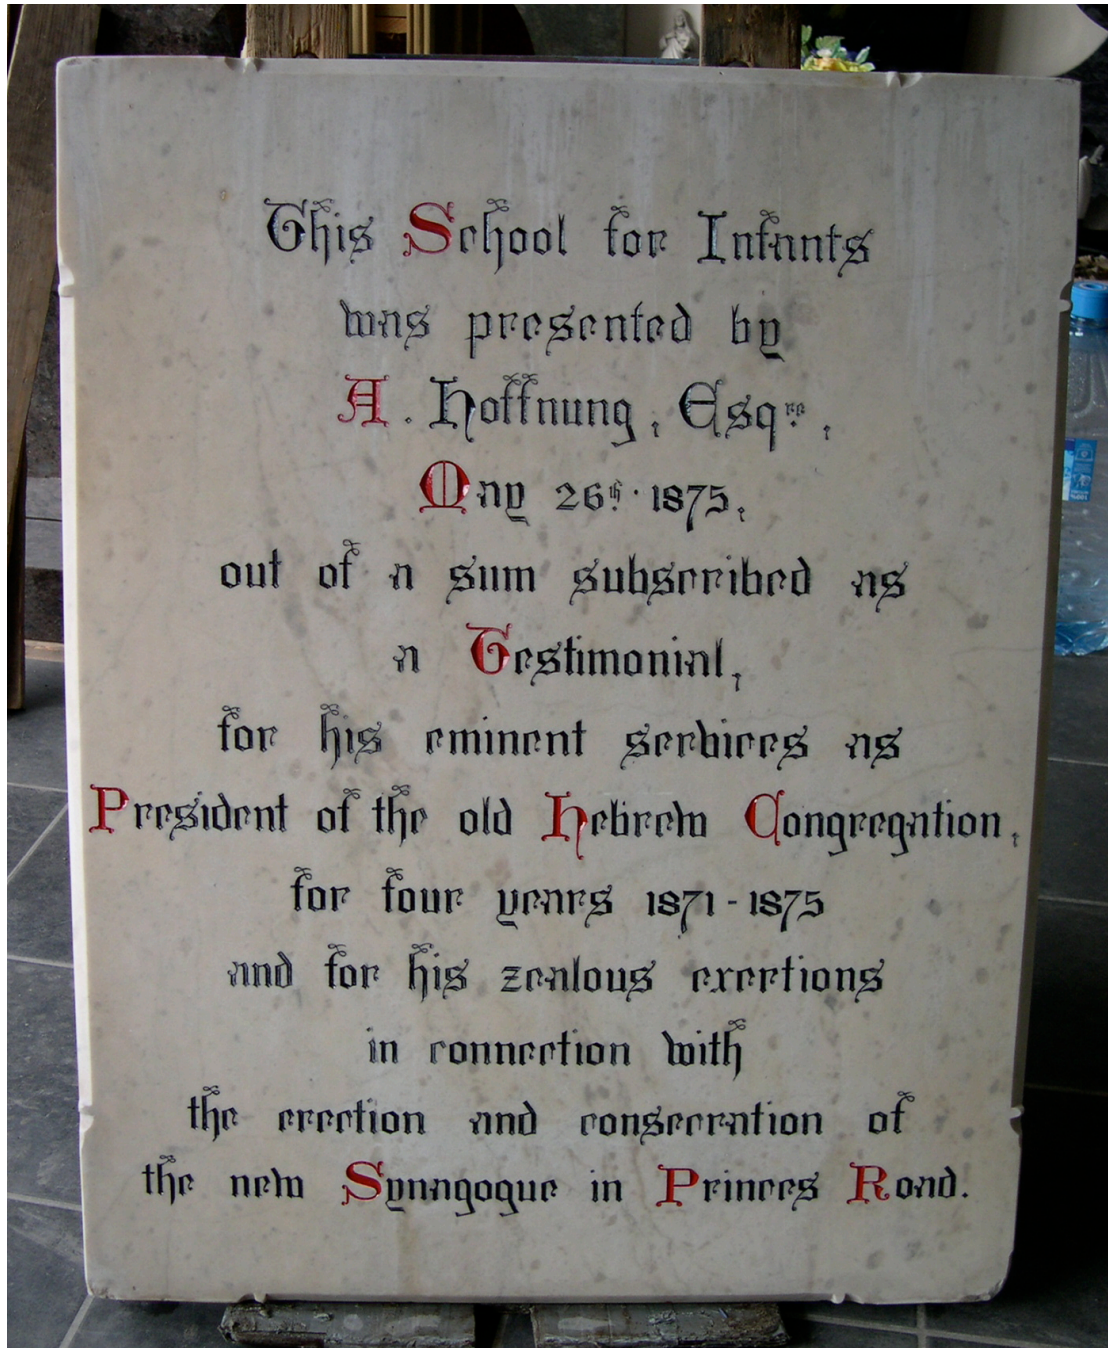 This School for Infants
was presented by
A. Hoffnung, Esqre,
May 26th. 1875,
out of a sum subscribed as
a Testimonial,
for his eminent services as
President of the old Hebrew Congregation,
for four years 1871-1875
and for his zealous exertions
in connection with
the erection and consecration of
the new Synagogue in Princes Road.